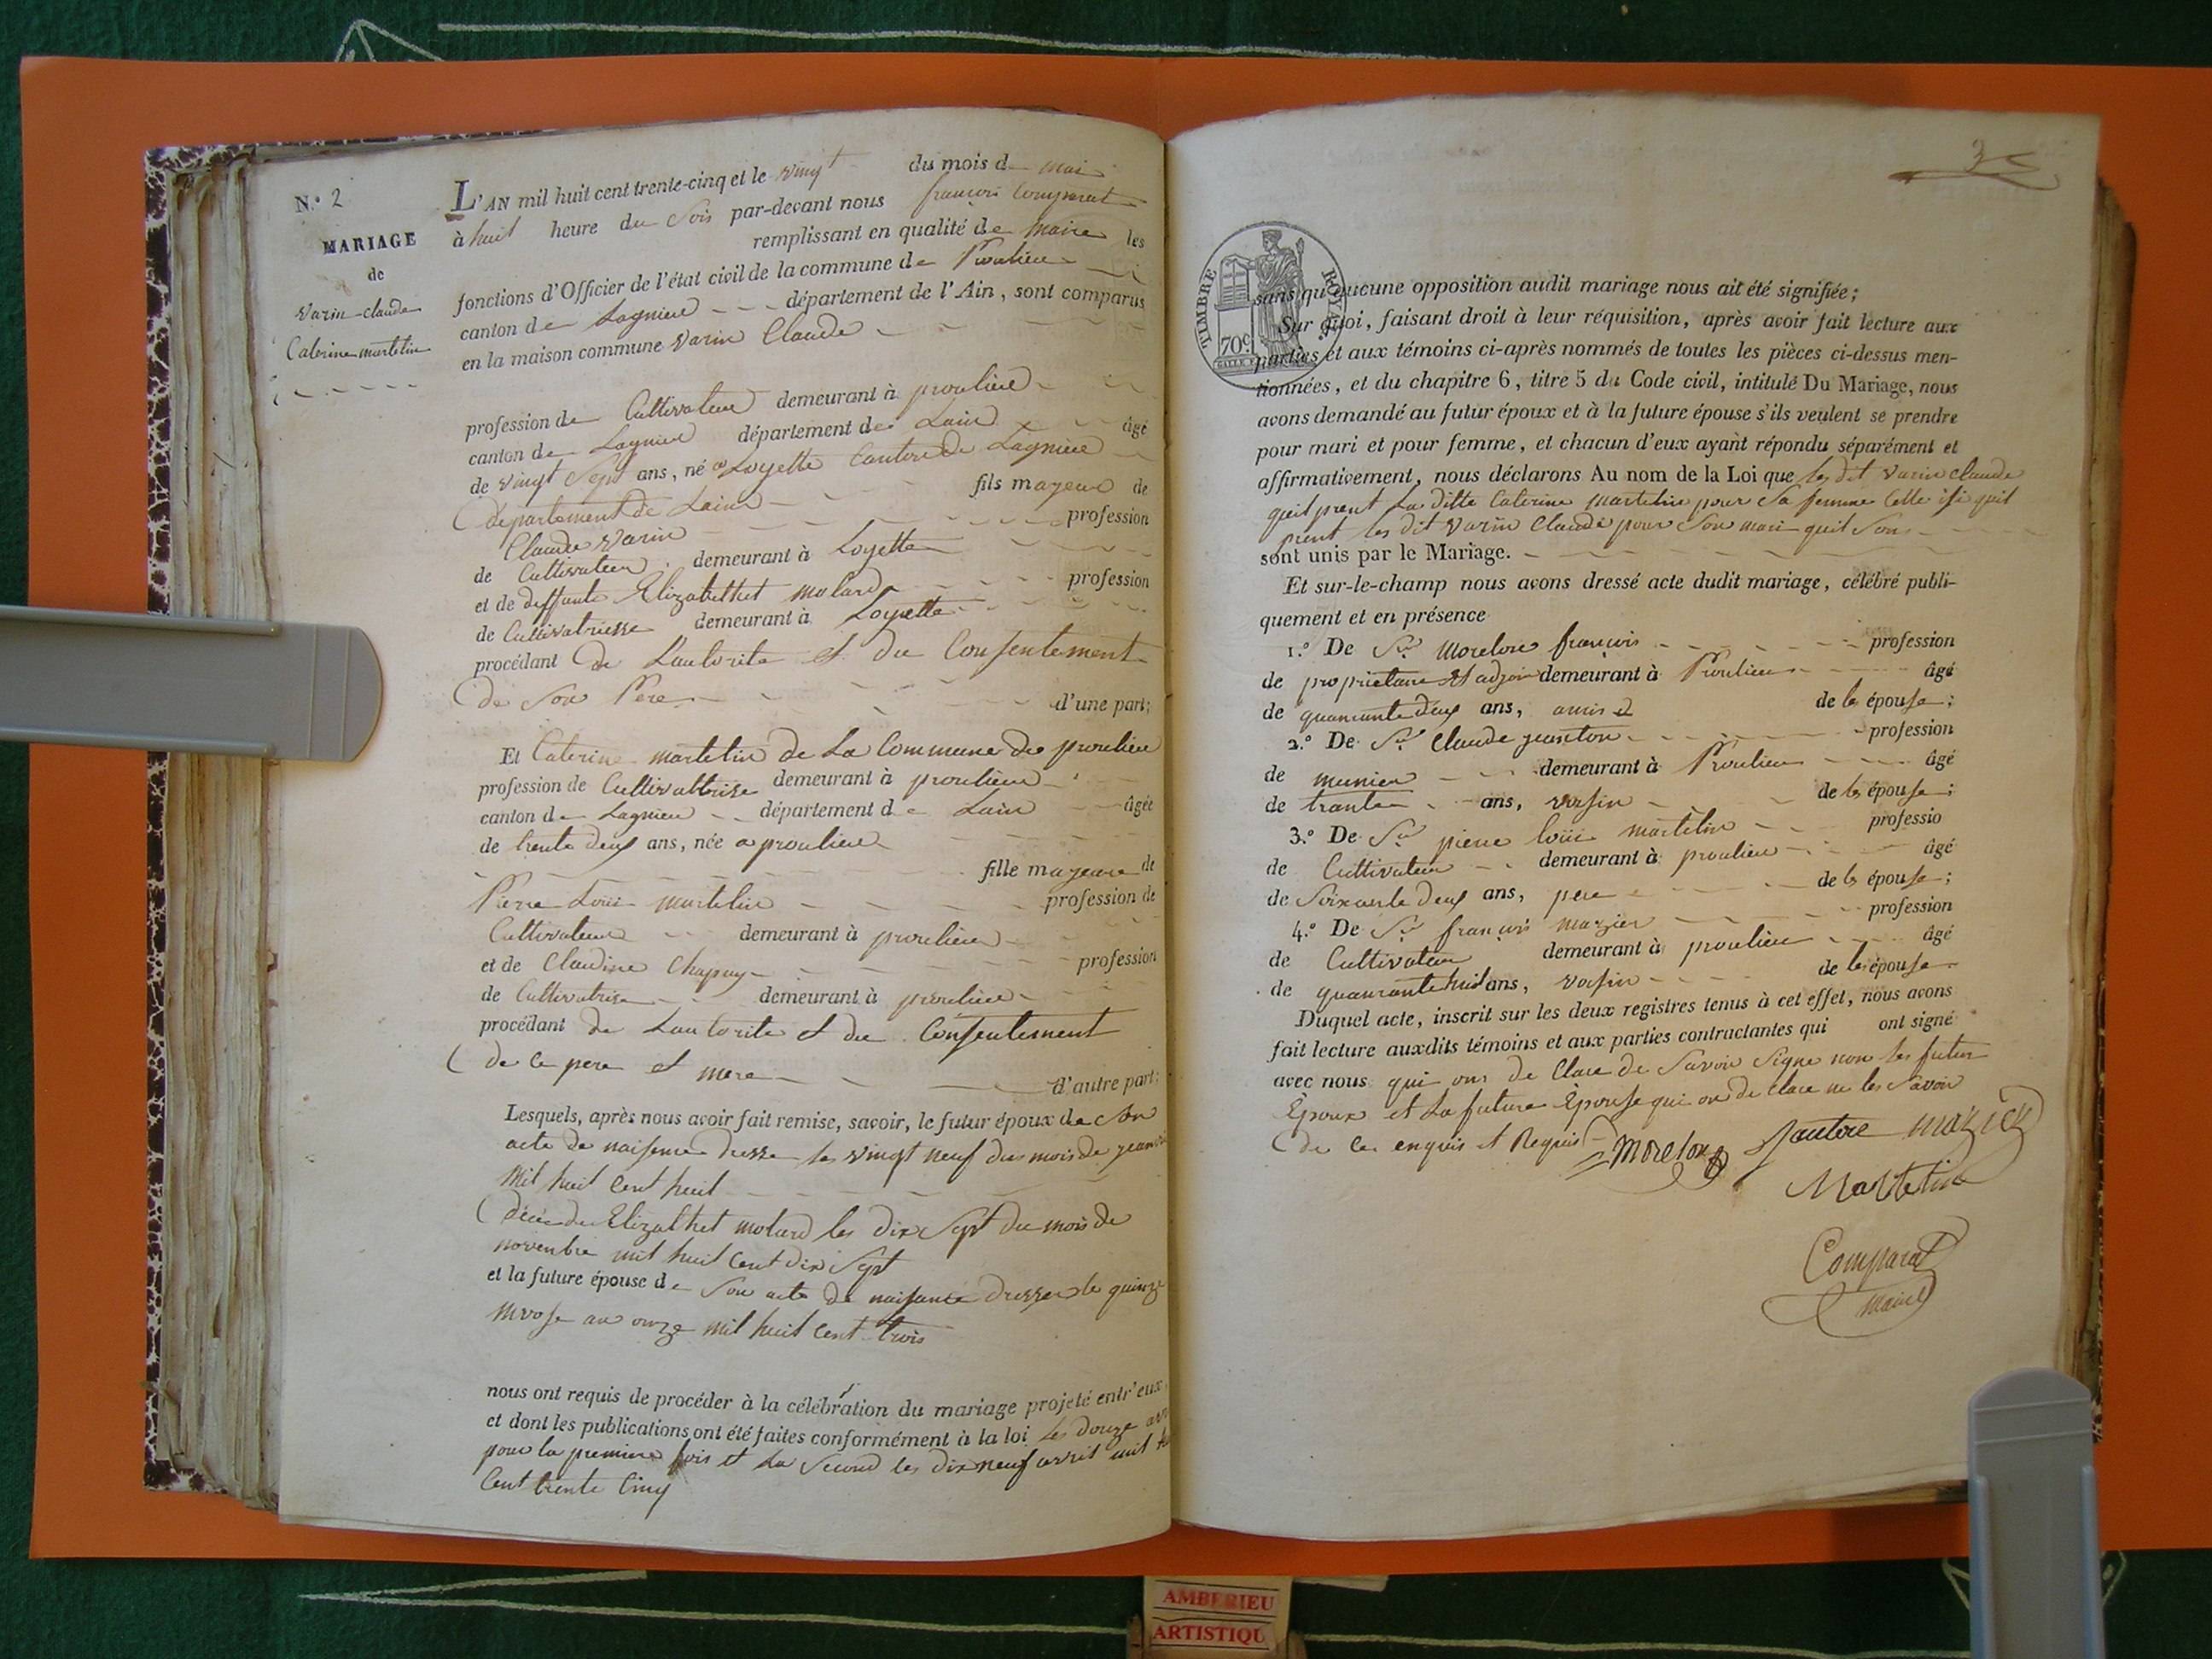 N.o 2
MARIAGE
de
Varin claude
Caterine martelin
L'AN mil huit cent trente-cinq et le vingt du mois de mai
à huit heure du Soir par-devant nous françois Comparat
remplissant en qualité de maire les
fonctions d'Officier de l'état civil de la commune de Proulieu
canton de Lagnieu département de l'Ain, sont comparus
en la maison commune Varin Claude
profession de Cultivateur demeurant à proulieu
canton de Lagnieu département de Lain âgé
de vingt Sept ans, né a Loyette Canton de Lagnieu
département de Lain fils mayeur de
Claude Varin profession
de Cultivateur demeurant à Loyette
et de deffunte Elizabethet molard profession
de Cultivatriesse demeurant à Loyette
procédant de Lautorite et du Consentement
de Son Pere d'une part;
Et Caterine martelin de La Commune de proulieu
profession de Cultivattrise demeurant à proulieu
canton de Lagnieu département de Lain âgée
de trente deux ans, née a proulieu
fille mayeure de
Pierre Loui martelin profession de
Cultivateur demeurant à proulieu
et de Claudine Chapuy profession
de Cultivatrise demeurant à proulieu
procédant de Lautorite et du Consentement
de Ce pere et mere d'autre part;
Lesquels, après nous avoir fait remise, savoir, le futur époux de Son
acte de naisence dresse les vingt neuf du mois de
mil huit Cent huit
décé de Elizalthet molard les dix Sept du mois de
novembre mil huit Cent dix Sept
et la future épouse de Son acte de naisance dresser le quinze
nivose an onze mil huit Cent trois
nous ont requis de procéder à la célébration du mariage projeté entr'eux,
et dont les publications ont été faites conformément à la loi Les douze
pour la premiere fois et La Second les dix neuf avril mil
Cent trente Cinq
TIMBRE ROYAL
70c
sans qu'aucune opposition audit mariage nous ait été signifiée;
Sur quoi, faisant droit à leur réquisition, après avoir fait lecture aux
parties et aux témoins ci-après nommés de toutes les pièces ci-dessus men-
tionnées, et du chapitre 6, titre 5 du Code civil, intitulé Du Mariage, nous
avons demandé au futur époux et à la future épouse s'ils veulent se prendre
pour mari et pour femme, et chacun d'eux ayant répondu séparément et
affirmativement, nous déclarons Au nom de la Loi que les dit Varin Claude
quil prent La ditte Caterine martelin pour Sa femme Celle isi quil
prent les dit Varin Claude pour Son mari quil Son
sont unis par le Mariage.
Et sur-le-champ nous avons dressé acte dudit mariage, célébré publi-
quement et en présence
1.o De Sr morelon françois profession
de proprietaire et adjoin demeurant à Proulieu âgé
de quarante deux ans, amis de les épouse;
2.o De Sr Claude profession
de munier demeurant à Proulieu âgé
de trante ans, vosin de les épouse;
3.o De Sr pierre loui martelin professio
de Cultivateur demeurant à proulieu âgé
de Soixante deux ans, pere de les épouse;
4.o De Sr françois mazier profession
de Cultivateur demeurant à proulieu âgé
de quarante huit ans, vosin de les épouse
Duquel acte, inscrit sur les deux registres tenus à cet effet, nous avons
fait lecture auxdits témoins et aux parties contractantes qui ont signé
avec nous qui ons de Clare de Savoir Signe non les futur
Epoux et La future Epouse qui on de Clare ne les Savoir
de Ces enquis et Requis
Morelon mazier
Martelin
Comparat
maire
AMBERIEU
ARTISTIQU